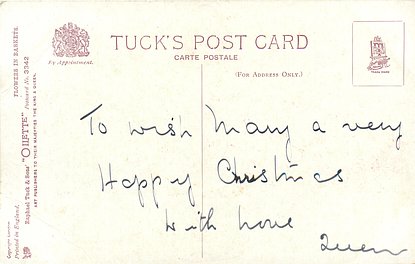 TUCK'S POST CARD
CARTE POSTALE
(FOR ADDRESS ONLY.)
By Appointment.
TRADE MARK
FLOWERS IN BASKETS.
Raphael Tuck & Sons' "OILETTE" Postcard No. 3342
ART PUBLISHERS TO THEIR MAJESTIES THE KING & QUEEN.
Copyright
Printed in England.
To wish Mary a very
Happy Christmas
With love